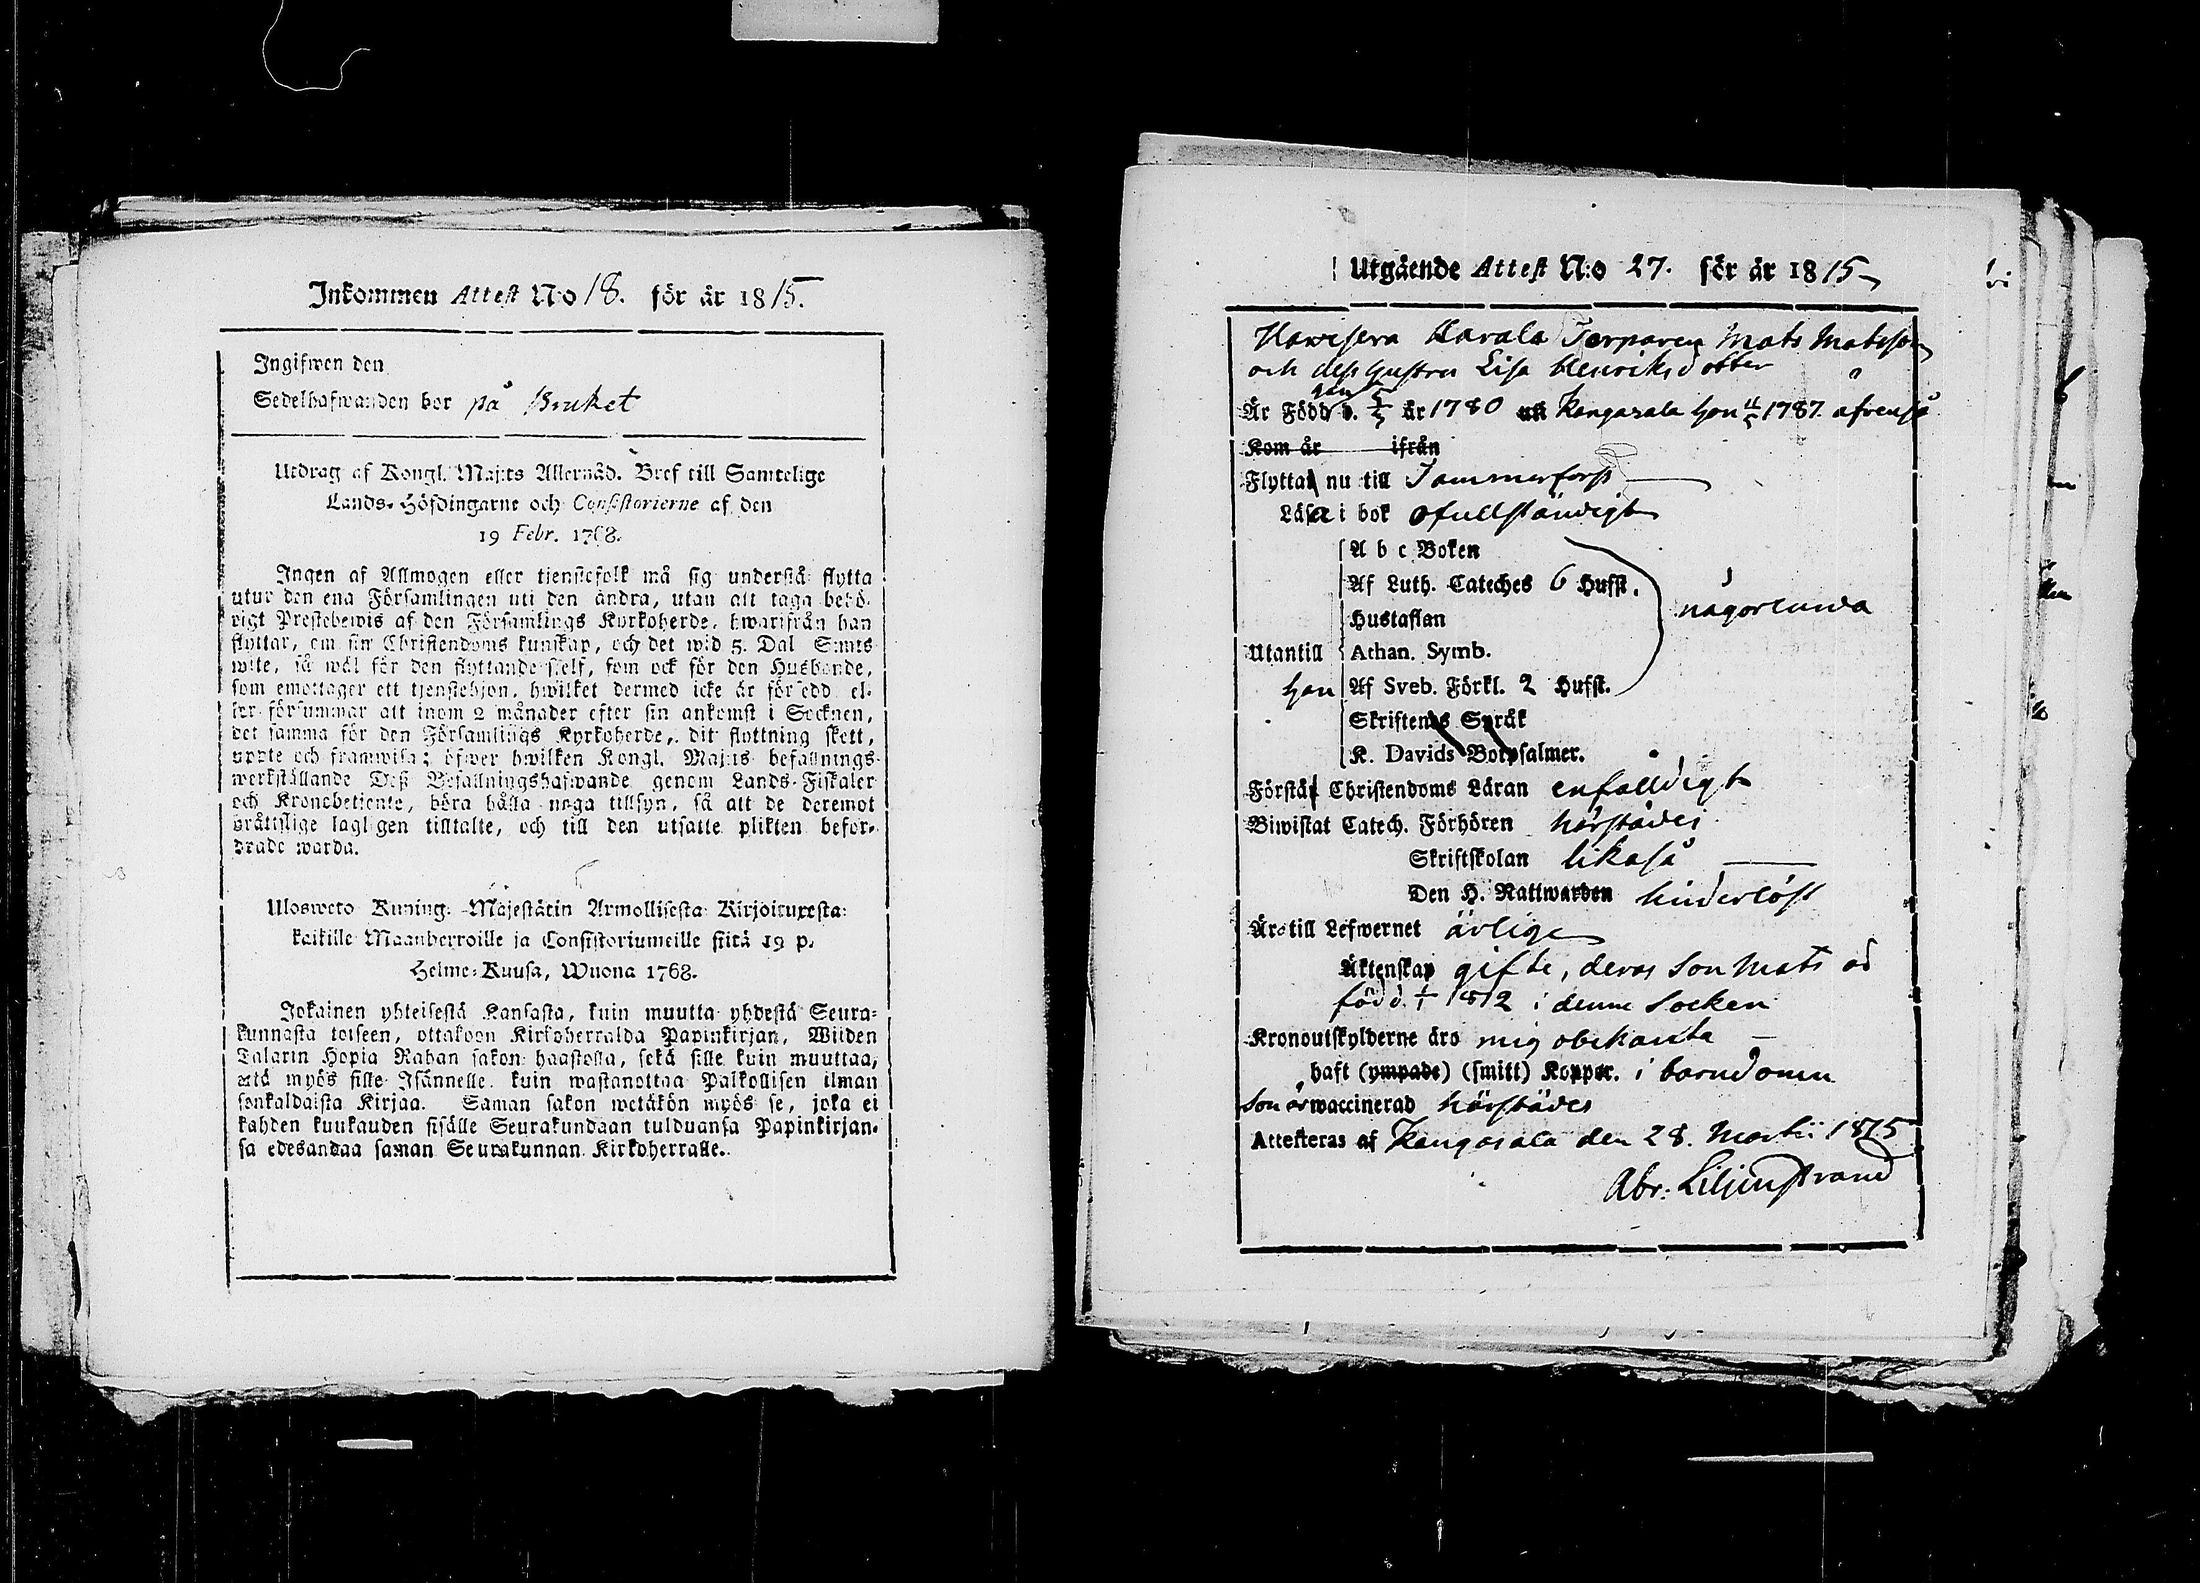 Inkommen Attest N:o 18. för år 1815.
Ingifwen den
Sedelhafwanden bor på Bruket
Utdrag af Kongl. Maj:ts Allernåd. Bref till Samtelige
Lands-Höfdingarne och Consistorierne af den
19 Febr. 1768.
Ingen af Allmogen eller tjenstefolk må sig understå flytta
utur den ena Församlingen uti den andra, utan att taga behö-
rigt Prestebewis af den Församlings Kyrkoherde, hwarifrån han
flyttar, om sin Christendoms kunskap, och det wid 5. Dal S:mts
wite, så wäl för den flyttande sjelf, som ock för den Husbonde,
som emottager ett tjenstehjon, hwilket dermed icke är försedd el-
ler försummar att inom 2 månader efter sin ankomst i Socknen,
det samma för den Församlings Kyrkoherde, dit flyttning skett,
uppte och framwisa; öfwer hwilken Kongl. Maj:ts befallnings
werkställande Deß Befallningshafwande genom Lands-Fiskaler
och Kronobetjente, böra hålla noga tillsyn, så att de deremot
bråttslige lagligen tilltalte, och till den utsatte plikten befor-
drade warda.
Ulosweto Kuning. Majestätin Armollisesta Kirjoituxesta
kaikille Maanherroille ja Consistoriumeille siitä 19 p.
Helme-Kuusa, Wuona 1768.
Jokainen yhteisestä Kansasta, kuin muutta yhdestä Seura-
kunnasta toiseen, ottakoon Kirkoherralda Papinkirjan, Wiiden
Talarin Hopia Rahan sakon haastolla, sekä sille kuin muuttaa,
että myös sille Isännelle, kuin wastanottaa Palkollisen ilman
senkaldaista Kirjaa. Saman sakon wetäkön myös se, joka ei
kahden kuukauden sisälle Seurakundaan tulduansa Papinkirjan-
sa edesandaa saman Seurakunnan Kirkoherralle.
Utgående Attest N:o 27. för år 1815
Hawisera Karala Torparen Mats Matsson
och dess hustru Lisa Henriksdotter
Är Född han d. år 1780 uti Kangasala hon 1787 äfvenså
Kom år ifrån
Flyttat nu till Tammerfors
Läsa i bok ofullständigt
A b c Boken
Af Luth. Cateches 6 Hufst.
Hustaflan
någorlunda
Utantill Athan. Symb.
hon Af Sveb. Förkl. 2 Hufst.
Skriftenes Språk
K. Davids Botpsalmer.
Förstå Christendoms Läran enfalldigt
Biwistat Catech. Förhören härstädes
Skriftskolan likaså
Den H. Nattwarden hinderlöst
Är till Lefwernet ärlige
Äktenskap gifte, deras son Mats är
född 1812 i denne Socken
Kronoutskylderne äro mig obekanta
haft (ympade) (smitt) Koppor. i barndomen
Son är waccinerad härstädes
Attesteras af Kangasala den 28. Martii 1815
Abr: Liljenstrand